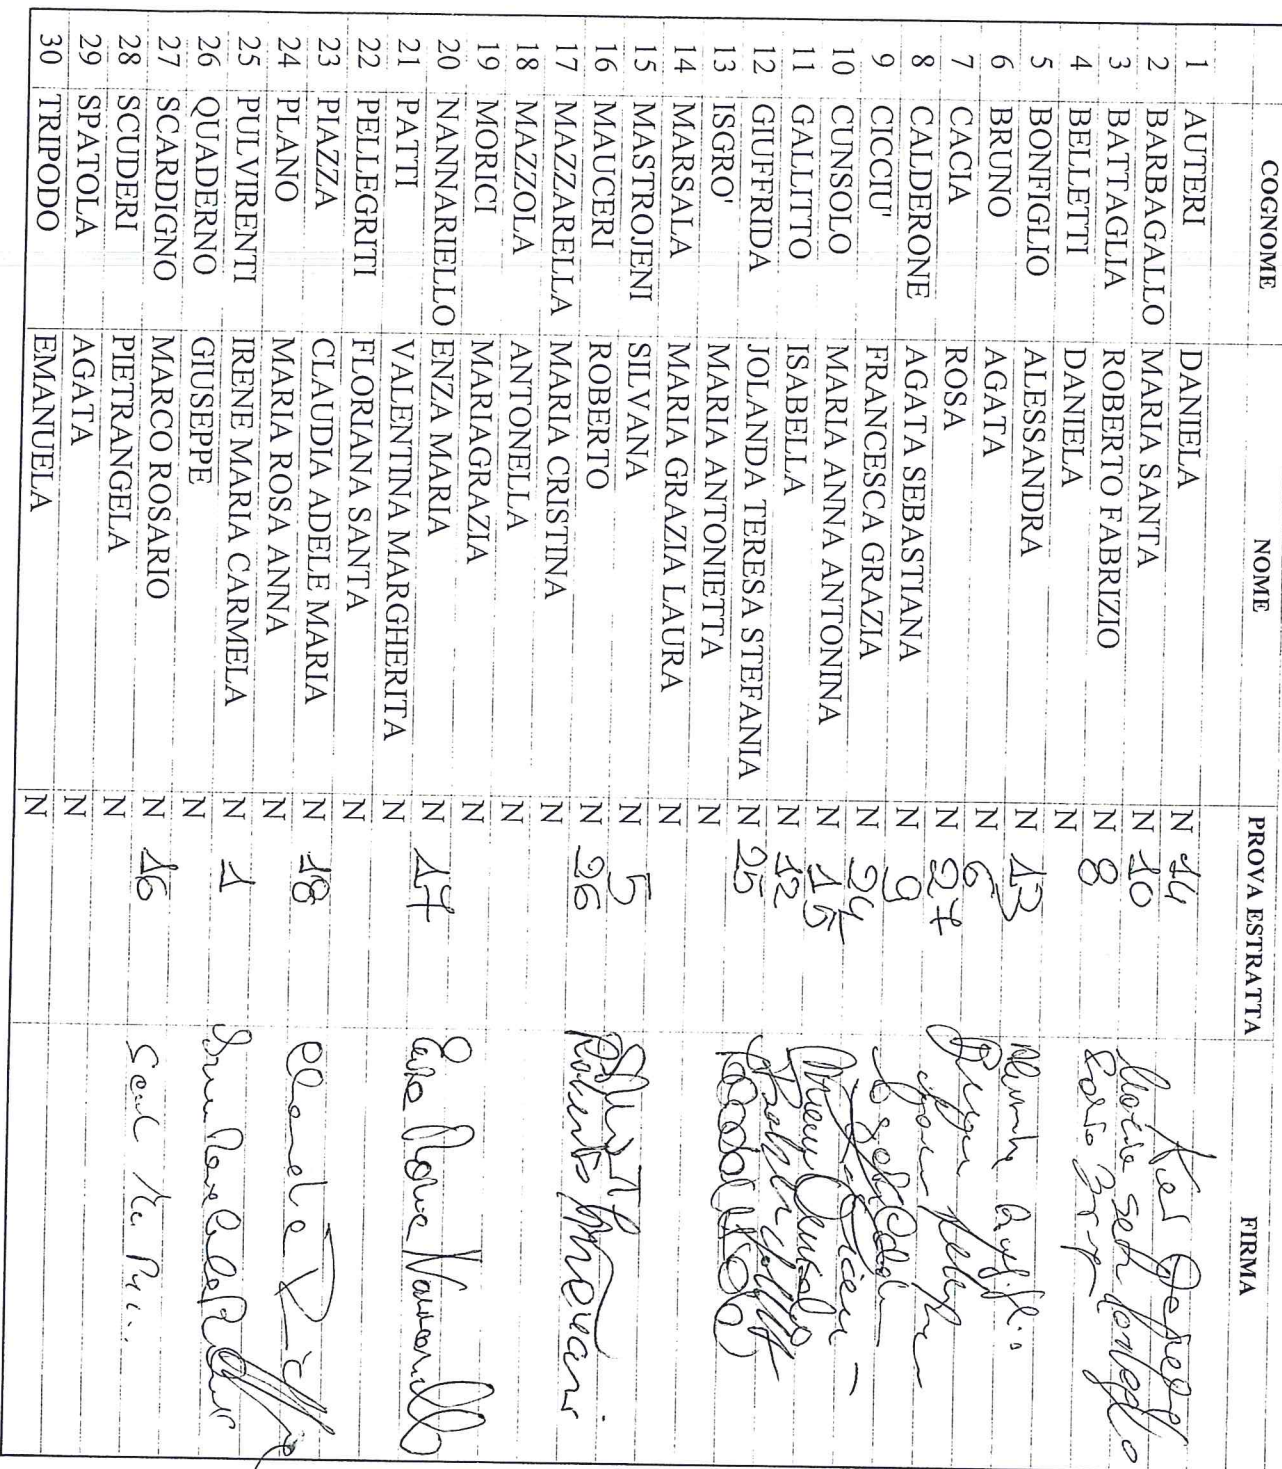 COGNOME NOME PROVA ESTRATTA FIRMA
1 AUTERI DANIELA N 14
2 BARBAGALLO MARIA SANTA N 10
3 BATTAGLIA ROBERTO FABRIZIO N 8
4 BELLETTI DANIELA N
5 BONFIGLIO ALESSANDRA N 13
6 BRUNO AGATA N 6
7 CACIA ROSA N 27
8 CALDERONE AGATA SEBASTIANA N 9
9 CICCIU' FRANCESCA GRAZIA N 24
10 CUNSOLO MARIA ANNA ANTONINA N 15
11 GALLITTO ISABELLA N 12
12 GIUFFRIDA JOLANDA TERESA STEFANIA N 25
13 ISGRO' MARIA ANTONIETTA N
14 MARSALA MARIA GRAZIA LAURA N
15 MASTROJENI SILVANA N 5
16 MAUCERI ROBERTO N 26 Roberto Mauceri
17 MAZZARELLA MARIA CRISTINA N
18 MAZZOLA ANTONELLA N
19 MORICI MARIAGRAZIA N
20 NANNARIELLO ENZA MARIA N 17
21 PATTI VALENTINA MARGHERITA N
22 PELLEGRITI FLORIANA SANTA N
23 PIAZZA CLAUDIA ADELE MARIA N 18
24 PLANO MARIA ROSA ANNA N
25 PULVIRENTI IRENE MARIA CARMELA N 1
26 QUADERNO GIUSEPPE N
27 SCARDIGNO MARCO ROSARIO N 16
28 SCUDERI PIETRANGELA N
29 SPATOLA AGATA N
30 TRIPODO EMANUELA N